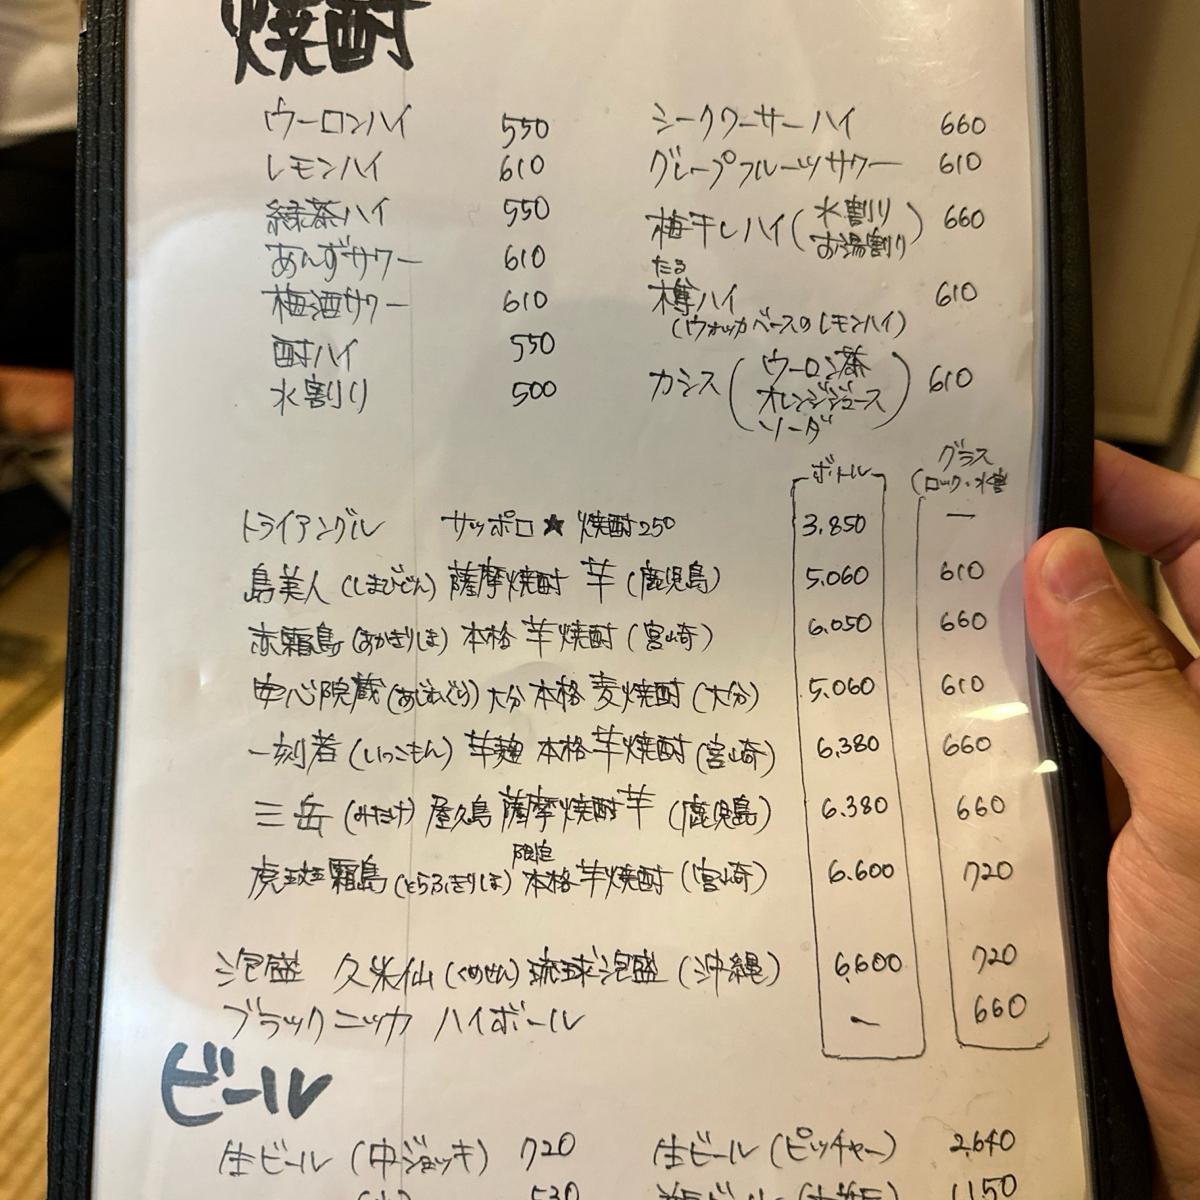 焼酎
ウーロンハイ 550
レモンハイ 610
緑茶ハイ 550
あんずサワー 610
梅酒サワー 610
酎ハイ 550
水割り 500
シークワーサーハイ 660
グレープフルーツサワー 610
梅干しハイ(水割り お湯割り) 660
たる
樽ハイ 610
(ウォッカベースのレモンハイ)
カシス(ウーロン茶 オレンジジュース ソーダ) 610
ボトル グラス
(ロック・水割
トライアングル サッポロ★焼酎250 3.850 ー
島美人(しまびじん)薩摩焼酎 芋(鹿児島) 5.060 610
赤霧島(あかぎりしま)本格 芋焼酎(宮崎) 6.050 660
安心院蔵(あじむぐら)大分 本格 麦焼酎(大分) 5.060 610
一刻者(いっこもん)芋麹 本格 芋焼酎(宮崎) 6.380 660
三岳(みたけ)屋久島 薩摩焼酎 芋(鹿児島) 6.380 660
限定
虎斑霧島(とらふきりしま)本格芋焼酎(宮崎) 6.600 720
泡盛 久米仙(くめせん)琉球泡盛(沖縄) 6.600 720
ブラックニッカ ハイボール ー 660
ビール
生ビール(中ジョッキ) 720
生ビール(ピッチャー) 2.640
530
1.150